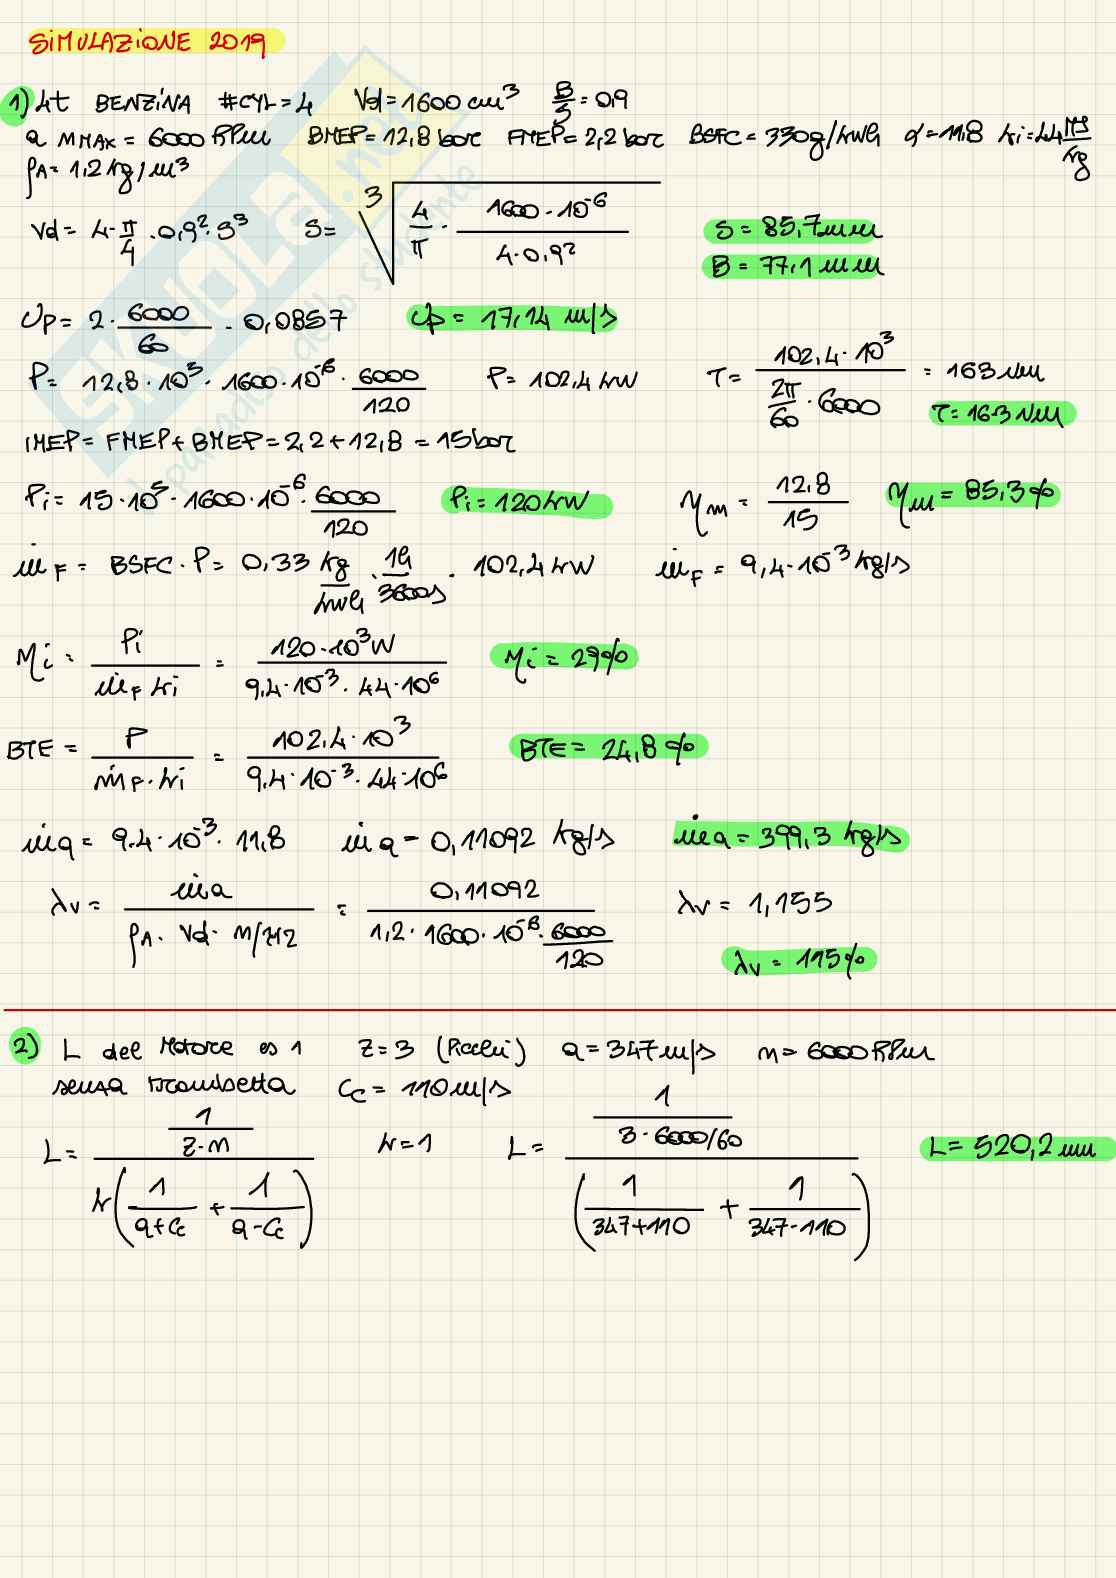 SIMULAZIONE 2019
1) 4t BENZINA #CYL=4 Vd=1600 cm³ B/S=0,9
a nMAX = 6000 RPM BMEP=12,8 bar FMEP=2,2 bar BSFC=330g/kWh α=11.8 ki=44 MJ/kg
ρA=1,2 kg/m³
Vd= 4·π/4·0,9²·S³ S= ³√(4/π · 1600·10⁻⁶/(4·0,9²)) S= 85,7mm
B= 77,1 mm
Up= 2·6000/60·0,0857 Up= 17,14 m/s
P= 12,8·10³·1600·10⁻⁶·6000/120 P= 102,4 kW T= 102,4·10³/(2π/60·6000) = 163 Nm
T= 163 Nm
IMEP= FMEP+BMEP=2,2+12,8 = 15bar
Pi= 15·10⁵·1600·10⁻⁶·6000/120 Pi=120kW ηm = 12.8/15 ηm = 85,3%
ṁF= BSFC·P= 0,33 kg/kWh · 1h/3600s · 102,4 kW ṁF= 9,4·10⁻³ kg/s
ηi= Pi/(ṁF ki) = 120·10³W/(9,4·10⁻³·44·10⁶) ηi= 29%
BTE= P/(ṁF·ki) = 102,4·10³/(9,4·10⁻³·44·10⁶) BTE= 24,8%
ṁa= 9.4·10⁻³·11,8 ṁa= 0,11092 kg/s ṁa= 399,3 kg/s
λv= ṁa/(ρA·Vd·n/z12) = 0,11092/(1,2·1600·10⁻⁶·6000/120) λv= 1,155
λv= 115%
2) L del Motore es 1 Z=3 (Picchi) a=347m/s n= 6000RPM
senza trombetta Cc= 110m/s
L= (1/(Z·n))/(k(1/(a+Cc)+1/(a-Cc))) k=1 L= (1/(3·6000/60))/(1/(347+110) + 1/(347-110)) L= 520,2 mm
SKUOLA.net
il paradiso dello studente